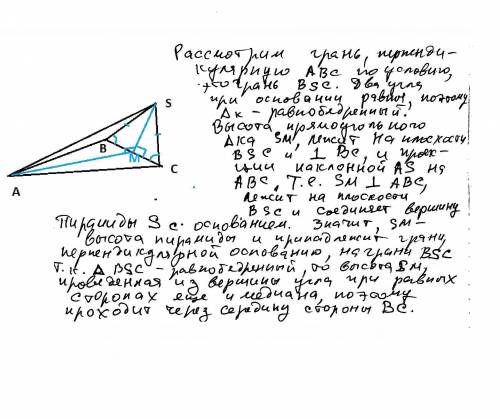 Рассмотрим грань, перпенди-
кулярную ABC по условию,
это грань BSC. Два угла
при основании равны, поэтому
Δк – равнобедренный.
Высота прямоугольного
Δка SM, лежит на плоскости
BSC и ⊥ BC, и проек-
ции наклонной AS на
ABC, т.е. SM ⊥ ABC,
лежит на плоскости
BSC и соединяет вершину
Пирамиды S с основанием. Значит, SM –
высота пирамиды и принадлежит грани,
перпендикулярной основанию, на грани BSC
Т.к. Δ BSC – равнобедренный, то высота SM,
проведенная из вершины угла при равных
сторонах еще и медиана, поэтому
проходит через середину стороны BC.
S
B
M
C
A